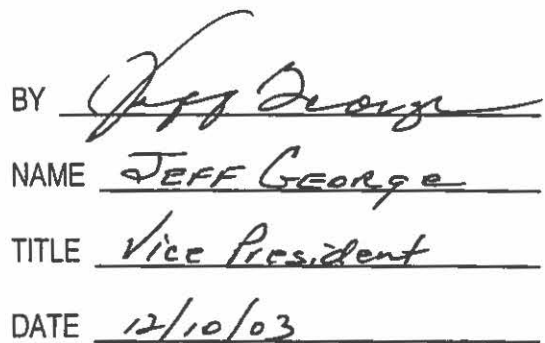 BY Jeff George
NAME JEFF GEORGe
TITLE Vice President
DATE 12/10/03